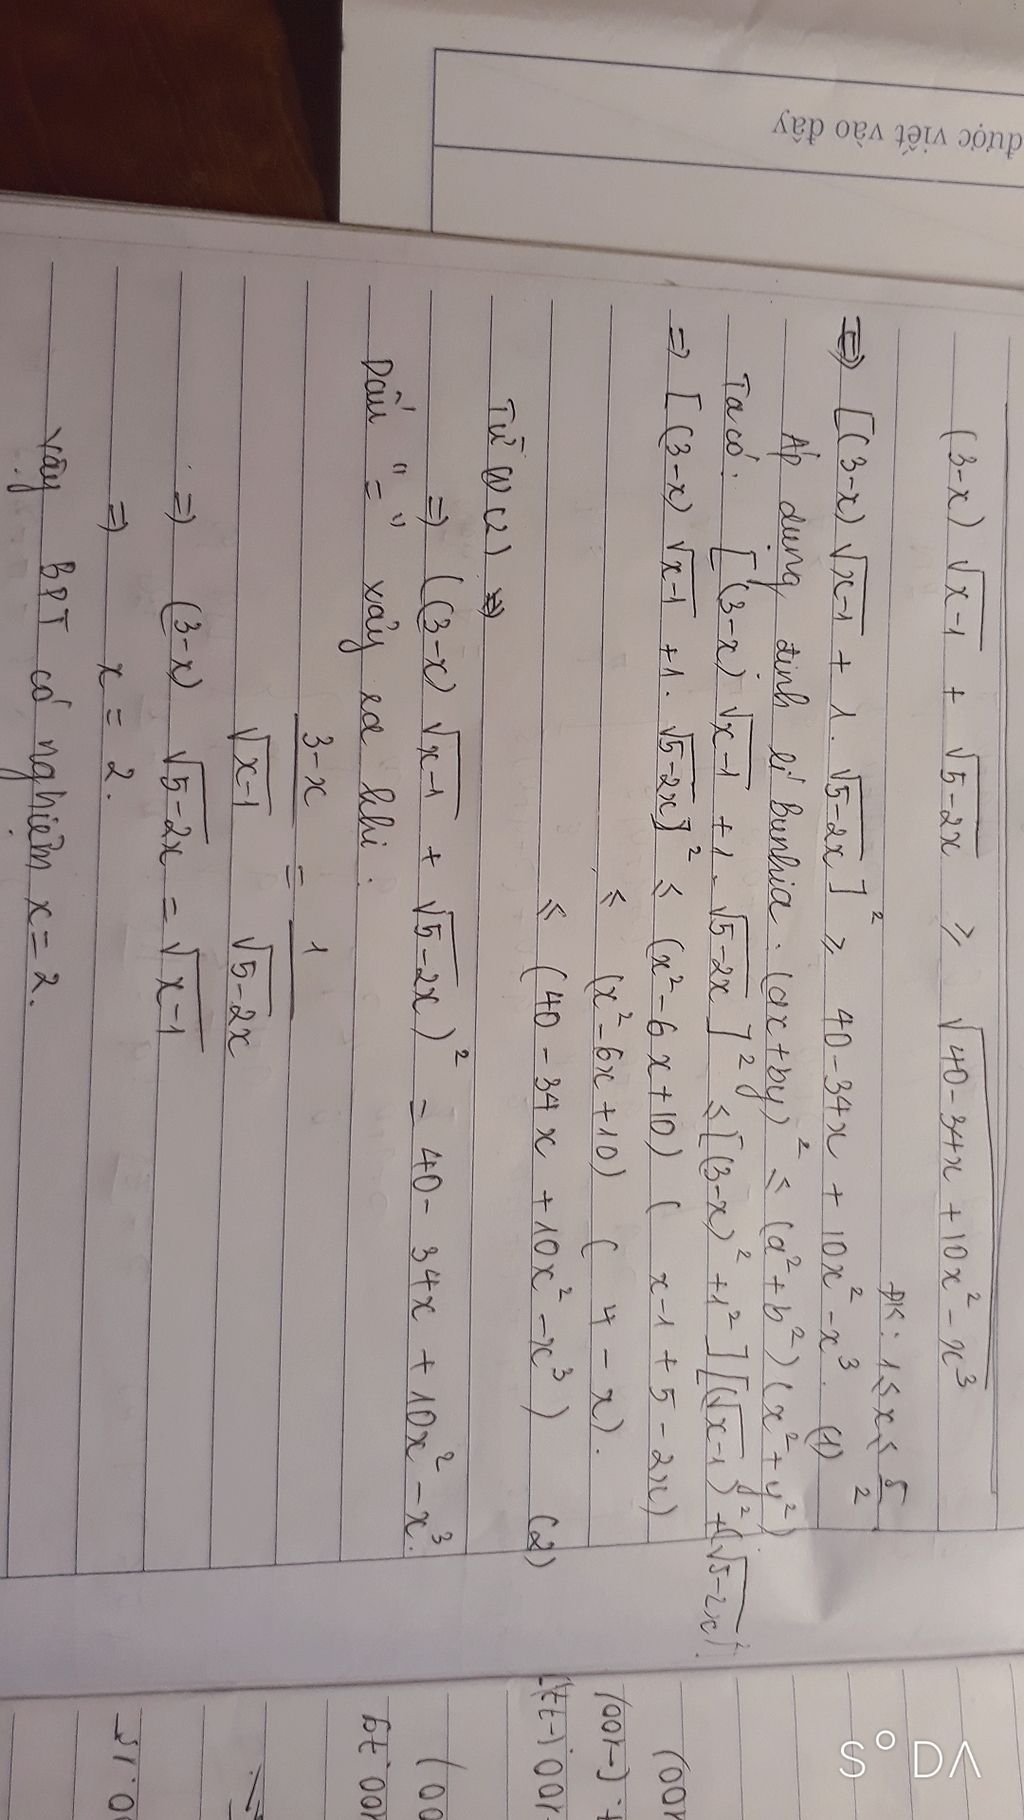 được viết vào đây
(3-x) √(x-1) + √(5-2x) ≥ √(40-34x+10x²-x³)
ĐK: 1 ≤ x ≤ 5/2
⇔ [(3-x) √(x-1) + 1. √(5-2x)]² ≥ 40-34x + 10x² - x³. (1)
Áp dụng định lí Bunhia. (ax+by)² ≤ (a²+b²)(x²+y²)
Ta có: [(3-x) √(x-1) + 1. √(5-2x)]² ≤ [(3-x)² + 1²][(√(x-1))² + (√(5-2x))²]
=> [(3-x) √(x-1) + 1. √(5-2x)]² ≤ (x²-6x+10) ( x-1+5-2x)
≤ (x²-6x+10) ( 4-x).
≤ (40-34x+10x²-x³) (2)
Từ (1) (2)
=> ((3-x) √(x-1) + √(5-2x))² = 40-34x+10x²-x³.
Dấu "=" xảy ra khi.
(3-x)/√(x-1) = 1/√(5-2x)
=> (3-x) √(5-2x) = √(x-1)
=> x = 2.
Vậy BPT có nghiệm x = 2.
S°DA